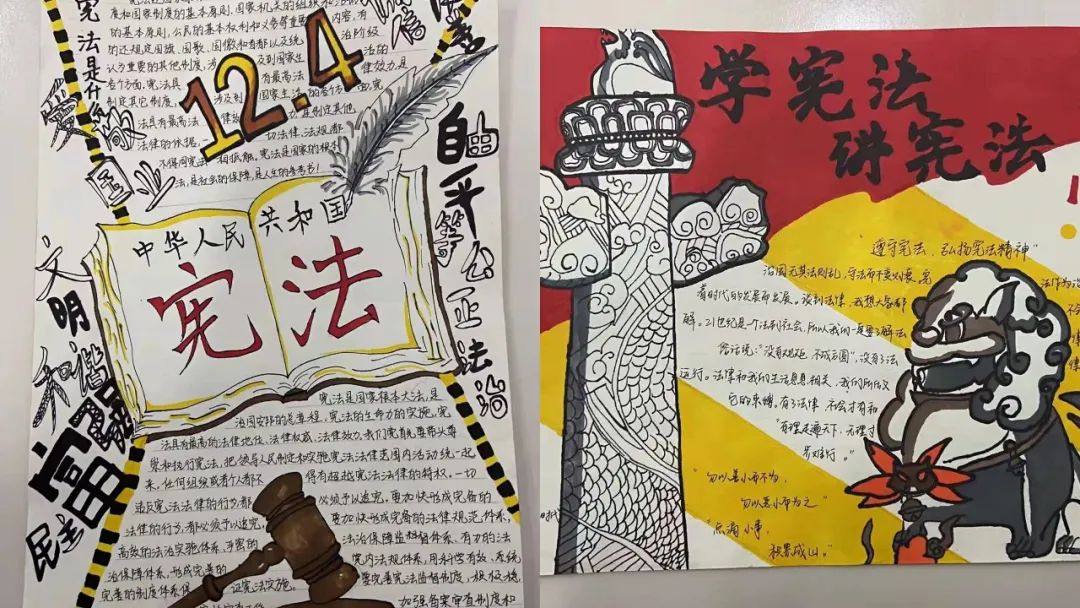 宪法是什么
12.4
度和国家制度的基本原则,国家机关的组织和活动
的基本原则,公民的基本权利和义务等重要内容,有
的还规定国旗、国歌、国徽和首都以及统治阶级
认为重要的其他制度,涉及到国家生活的
各个方面。宪法具有最高法律效力,是
制定其它
法律的依据,一切法律、法规都
不得同宪法相抵触。宪法是国家的根本
法,是社会的保障,是人生的参考书!
爱国
敬业
诚信
友善
自由平等公正法治
文明和谐
富强
民主
中华人民共和国
宪法
宪法是国家根本大法,是
治国安邦的总章程,宪法的生命力的实施,宪
法具有最高的法律地位、法律权威、法律效力。我们党首先要带头尊
崇和执行宪法,把领导人民制定和实施宪法法律范围内活动统一起
来,任何组织或者个人都不得有超越宪法法律的特权。一切
违反宪法法律的行为都必须予以追究。更加快形成完备的
法律的行为,都必须予以追究,更加快形成完备的法律规范体系,
高效的法治实施体系、严密的法治保障监督体系、有力的法
治保障体系,形成完善的党内法规体系,用科学有效、系统
完善的制度体系保证宪法实施。要完善宪法监督制度,积极稳
加强备案审查制度和
学宪法
讲宪法
“遵守宪法、弘扬宪法精神”
治国无其法则乱,守法而不变则衰。
着时代的发展而发展。谈到法律,我想大家都
解。21世纪是一个法制社会,所以我们一定要了解法
俗话说:“没有规矩,不成方圆”,没有了法
运行。法律和我们生活息息相关,我们所做
它的束缚。有了法律,不会才有和
“有理走遍天下,无理寸
步难行。”
“勿以善小而不为,
勿以恶小而为之”
“点滴小事,
积累成山。”